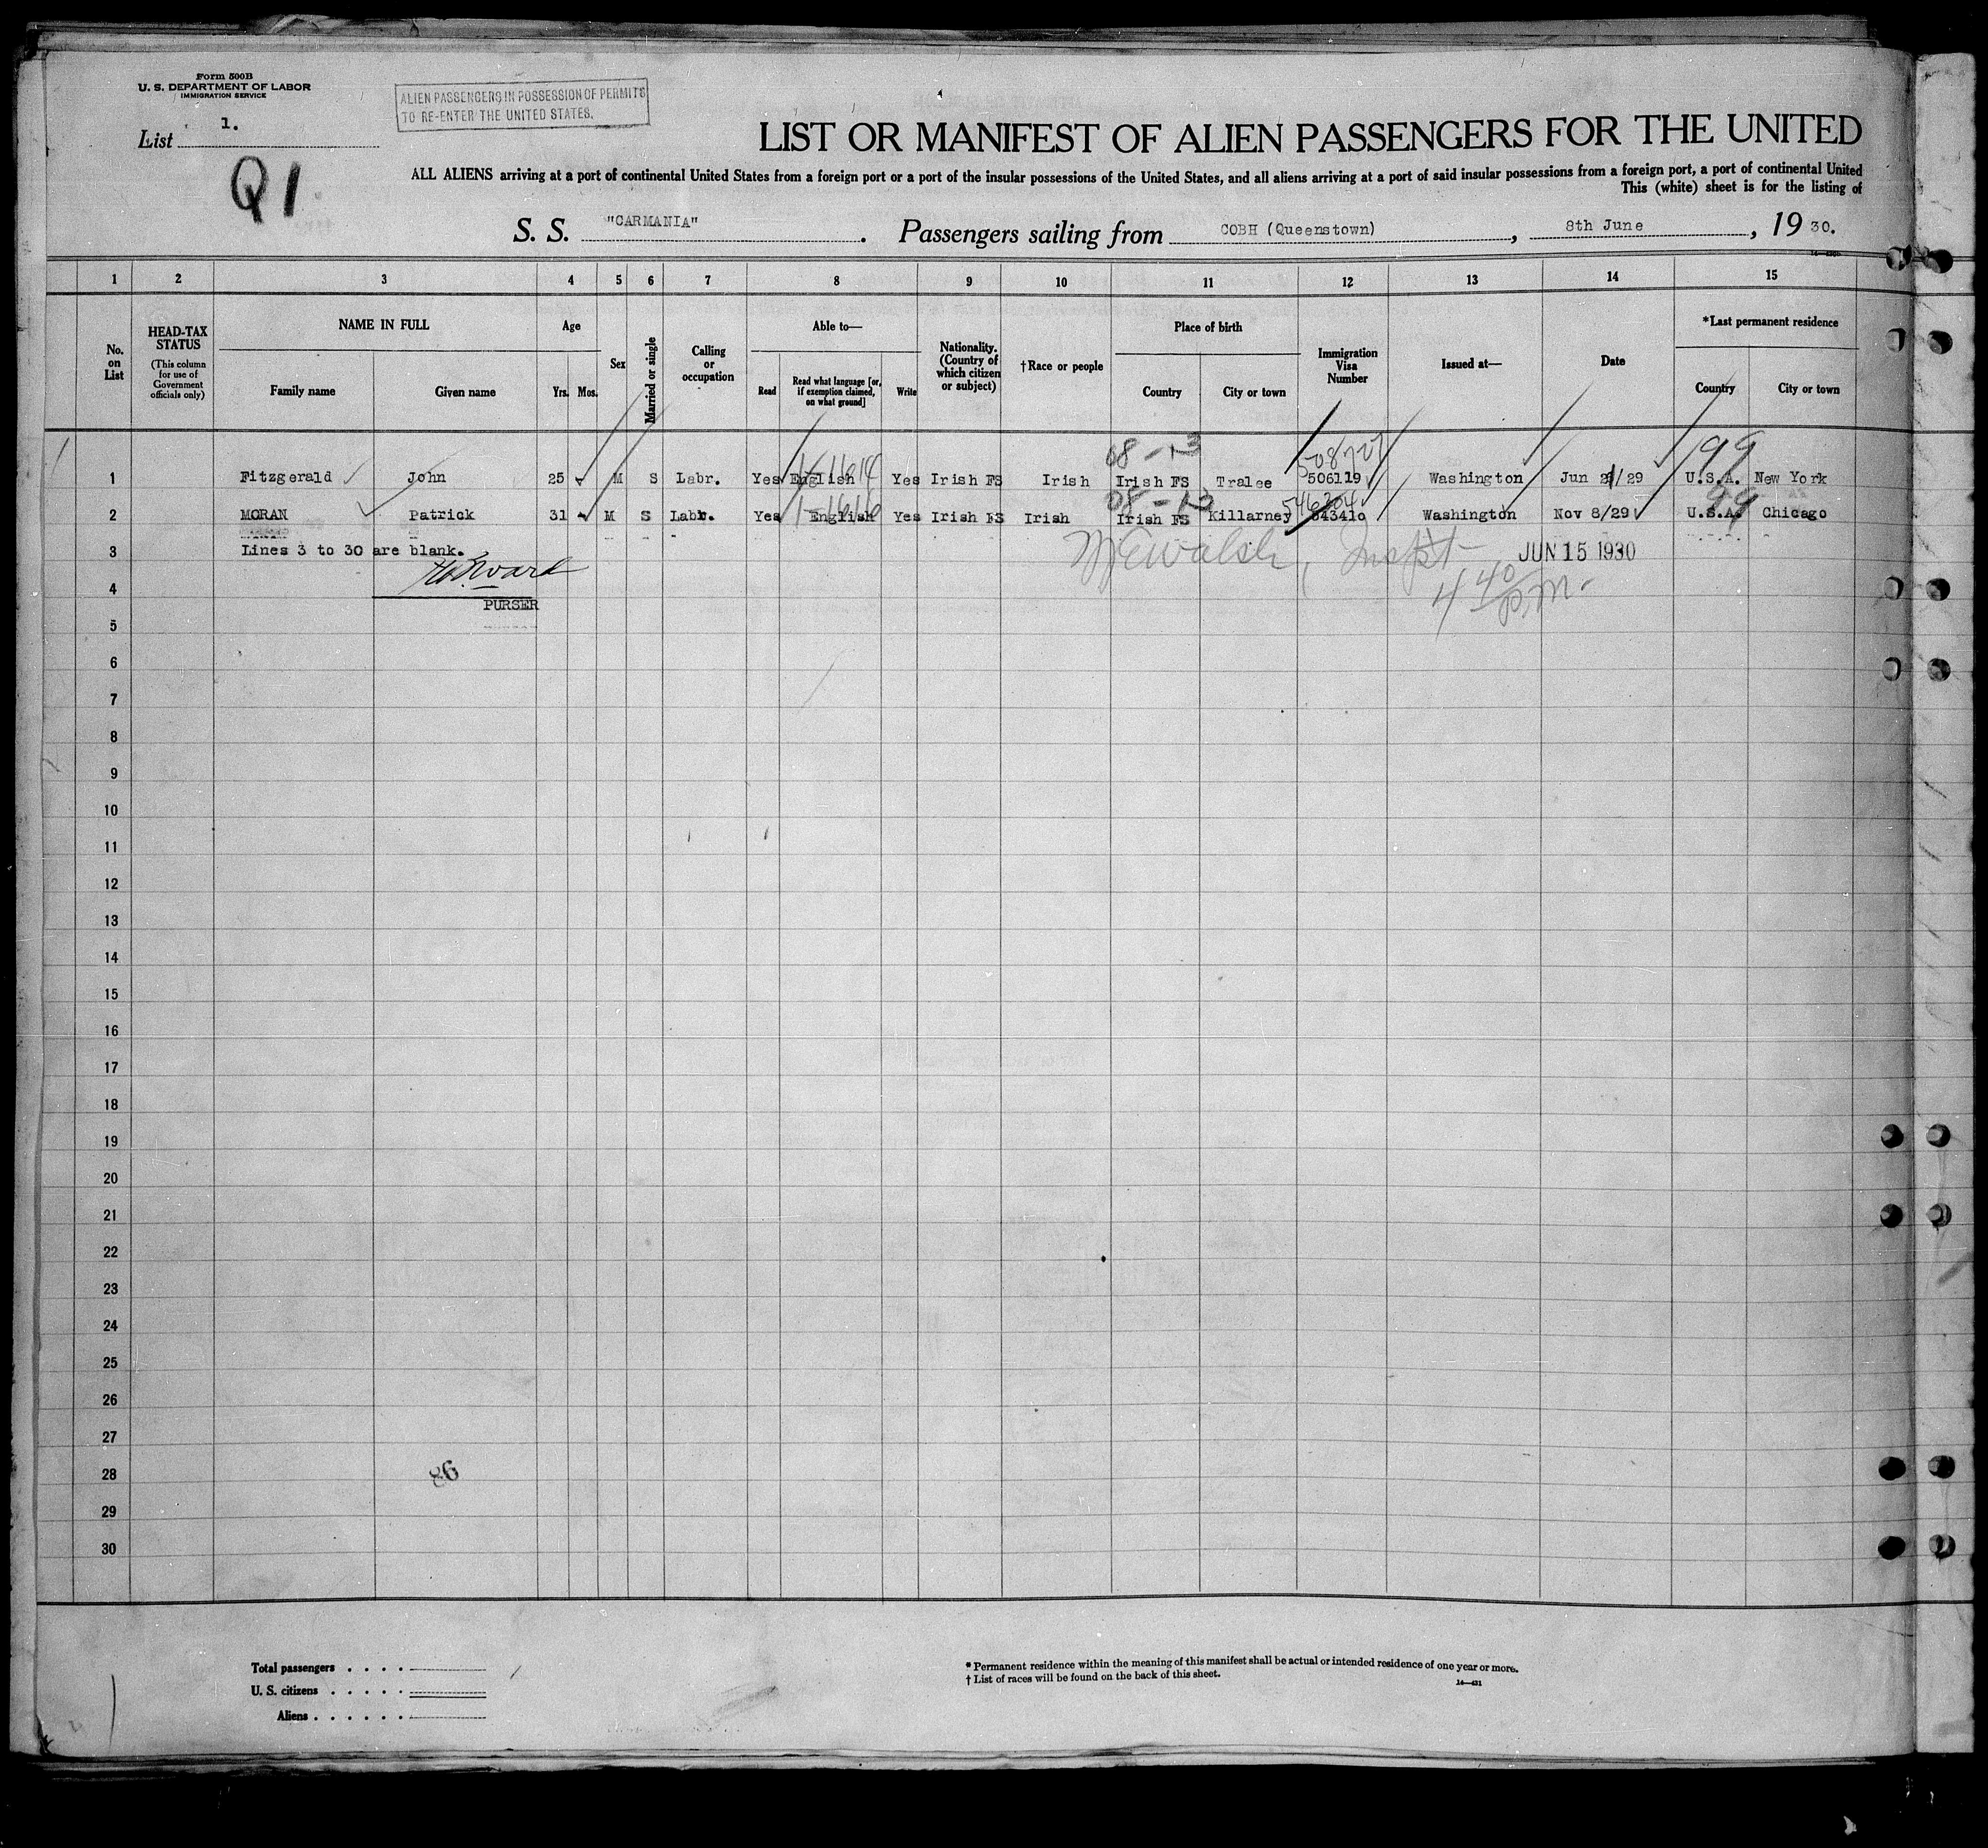 Form 500B
U. S. DEPARTMENT OF LABOR
IMMIGRATION SERVICE
ALIEN PASSENGERS IN POSSESSION OF PERMITS
TO RE-ENTER THE UNITED STATES.
List 1.
Q1
LIST OR MANIFEST OF ALIEN PASSENGERS FOR THE UNITED
ALL ALIENS arriving at a port of continental United States from a foreign port or a port of the insular possessions of the United States, and all aliens arriving at a port of said insular possessions from a foreign port, a port of continental United
This (white) sheet is for the listing of
S. S. "CARMANIA". Passengers sailing from COBH (Queenstown), 8th June, 19 30.
1 2 3 4 5 6 7 8 9 10 11 12 13 14 15
No. on List
HEAD-TAX STATUS
(This column for use of Government officials only)
NAME IN FULL
Family name Given name
Age
Yrs. Mos.
Sex
Married or single
Calling or occupation
Able to—
Read
Read what language [or, if exemption claimed, on what ground]
Write
Nationality. (Country of which citizen or subject)
†Race or people
Place of birth
Country City or town
Immigration Visa Number
Issued at—
Date
*Last permanent residence
Country City or town
08-13 508727 99
1 Fitzgerald John 25 M S Labr. Yes English Yes Irish FS Irish Irish FS Tralee 506119 Washington Jun 21/29 U.S.A. New York
08-13 546204 99
2 MORAN Patrick 31 M S Labr. Yes English Yes Irish FS Irish Irish FS Killarney 543410 Washington Nov 8/29 U.S.A. Chicago
3 Lines 3 to 30 are blank. Walsh, Inspt JUN 15 1930
4 4 40 P.M.
PURSER
5
6
7
8
9
10
11
12
13
14
15
16
17
18
19
20
21
22
23
24
25
26
27
28 86
29
30
Total passengers . . . .
U. S. citizens . . . . .
Aliens . . . . . .
* Permanent residence within the meaning of this manifest shall be actual or intended residence of one year or more.
† List of races will be found on the back of this sheet.
14—431